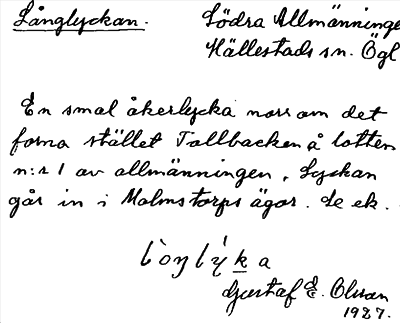 Långlyckan. Södra Allmänninge
Hällestads sn. Ögl
En smal åkerlycka norr om det
forna stället Tallbacken å lotten
n:r 1 av allmänningen. Lyckan
går in i Malmstorps ägor. Se ek.
Gustaf E. Olsson
1927.